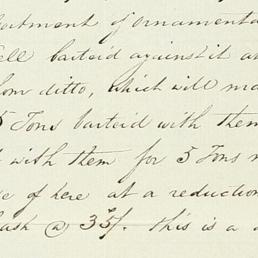 artment of ornamenta
ell barterd against it a
om ditto, which will ma
5 Tons barterd with them
with them for 5 Tons
e of here at a reduction
Cash @ 35/. this is a